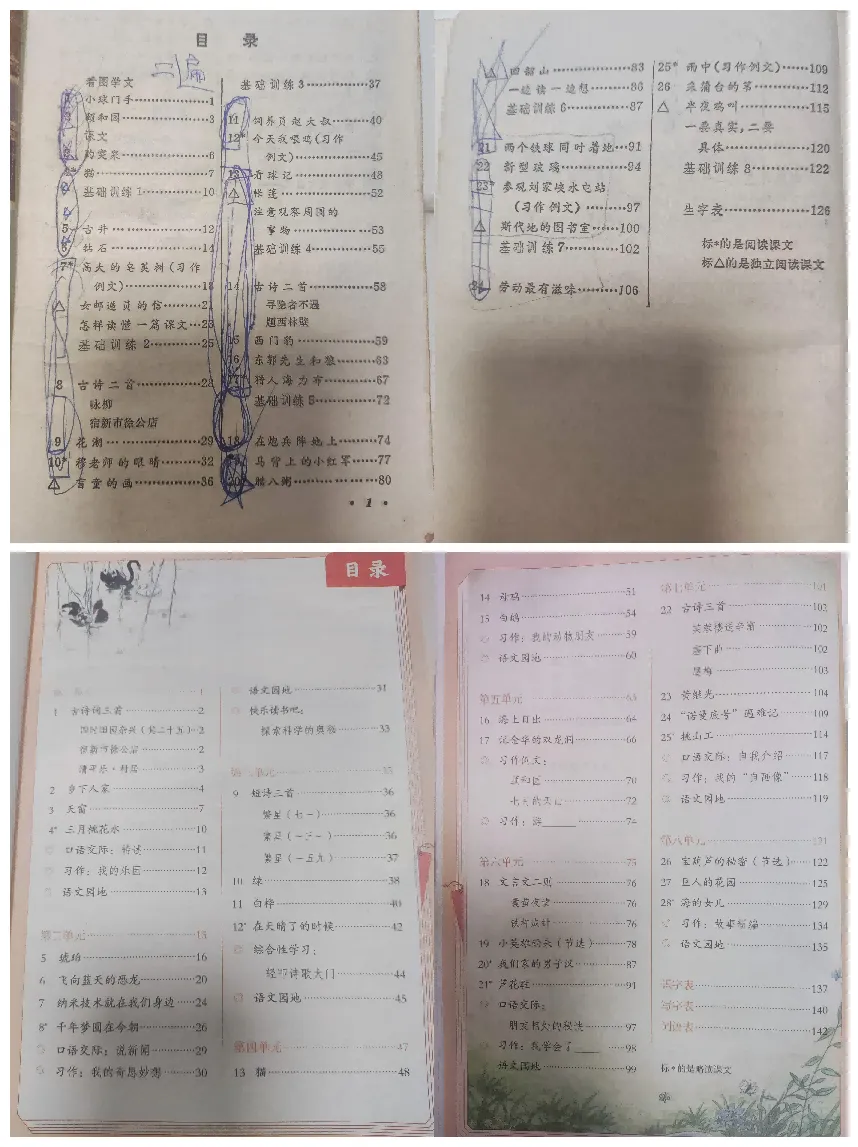 目 录
二遍
看图学文
1 小球门手⋯⋯1
2 颐和园⋯⋯3
课文
3 趵突泉⋯⋯6
4* 猫⋯⋯7
基础训练1⋯⋯10
5 古井⋯⋯12
6 钻石⋯⋯14
7* 高大的皂荚树(习作
例文)⋯⋯18
△ 女邮递员的信⋯⋯21
怎样读懂一篇课文⋯⋯23
基础训练2⋯⋯25
8 古诗二首⋯⋯28
咏柳
宿新市徐公店
9 花潮⋯⋯29
10* 穆老师的眼睛⋯⋯32
△ 盲童的画⋯⋯36
基础训练3⋯⋯37
11 饲养员赵大叔⋯⋯40
12* 今天我喂鸡(习作
例文)⋯⋯45
13 看球记⋯⋯48
△ 帐篷⋯⋯52
注意观察周围的
事物⋯⋯53
基础训练4⋯⋯55
14 古诗二首⋯⋯58
寻隐者不遇
题西林壁
15 西门豹⋯⋯59
16 东郭先生和狼⋯⋯63
17 猎人海力布⋯⋯67
基础训练5⋯⋯72
18 在炮兵阵地上⋯⋯74
19 马背上的小红军⋯⋯77
20 腊八粥⋯⋯80
• 1 •
△ 回韶山⋯⋯83
一边读一边想⋯⋯86
基础训练6⋯⋯87
21 两个铁球同时着地⋯91
22 新型玻璃⋯⋯94
23* 参观刘家峡水电站
(习作例文)⋯⋯97
△ 斯代地的图书室⋯⋯100
基础训练7⋯⋯102
24 劳动最有滋味⋯⋯106
25* 雨中(习作例文)⋯⋯109
26 采蒲台的苇⋯⋯112
△ 半夜鸡叫⋯⋯115
一要真实,二要
具体⋯⋯120
基础训练8⋯⋯122
生字表⋯⋯126
标*的是阅读课文
标△的是独立阅读课文
目录
1
1 古诗词三首⋯⋯2
四时田园杂兴(其二十五)⋯2
宿新市徐公店⋯⋯2
清平乐·村居⋯⋯3
2 乡下人家⋯⋯4
3 天窗⋯⋯7
4* 三月桃花水⋯⋯10
口语交际:转述⋯⋯11
习作:我的乐园⋯⋯12
语文园地⋯⋯13
第二单元⋯⋯15
5 琥珀⋯⋯16
6 飞向蓝天的恐龙⋯⋯20
7 纳米技术就在我们身边⋯⋯24
8* 千年梦圆在今朝⋯⋯26
口语交际:说新闻⋯⋯29
习作:我的奇思妙想⋯⋯30
语文园地⋯⋯31
快乐读书吧:
探索科学的奥秘⋯⋯33
第三单元⋯⋯35
9 短诗三首⋯⋯36
繁星(七一)⋯⋯36
繁星(一三一)⋯⋯36
繁星(一五九)⋯⋯37
10 绿⋯⋯38
11 白桦⋯⋯40
12* 在天晴了的时候⋯⋯42
综合性学习:
轻叩诗歌大门⋯⋯44
语文园地⋯⋯45
第四单元⋯⋯47
13 猫⋯⋯48
14 母鸡⋯⋯51
15 白鹅⋯⋯54
习作:我的动物朋友⋯⋯59
语文园地⋯⋯60
第五单元⋯⋯63
16 海上日出⋯⋯64
17 记金华的双龙洞⋯⋯66
习作例文:
颐和园⋯⋯70
七月的天山⋯⋯72
习作:游____⋯⋯74
第六单元⋯⋯75
18 文言文二则⋯⋯76
囊萤夜读⋯⋯76
铁杵成针⋯⋯76
19 小英雄雨来(节选)⋯⋯78
20* 我们家的男子汉⋯⋯87
21* 芦花鞋⋯⋯91
口语交际:
朋友相处的秘诀⋯⋯97
习作:我学会了____⋯⋯98
语文园地⋯⋯99
第七单元⋯⋯101
22 古诗三首⋯⋯102
芙蓉楼送辛渐⋯⋯102
塞下曲⋯⋯102
墨梅⋯⋯103
23 黄继光⋯⋯104
24 “诺曼底号”遇难记⋯⋯109
25* 挑山工⋯⋯114
口语交际:自我介绍⋯⋯117
习作:我的“自画像”⋯⋯118
语文园地⋯⋯119
第八单元⋯⋯121
26 宝葫芦的秘密(节选)⋯⋯122
27 巨人的花园⋯⋯125
28* 海的女儿⋯⋯129
习作:故事新编⋯⋯134
语文园地⋯⋯135
识字表⋯⋯137
写字表⋯⋯140
词语表⋯⋯142
标*的是略读课文